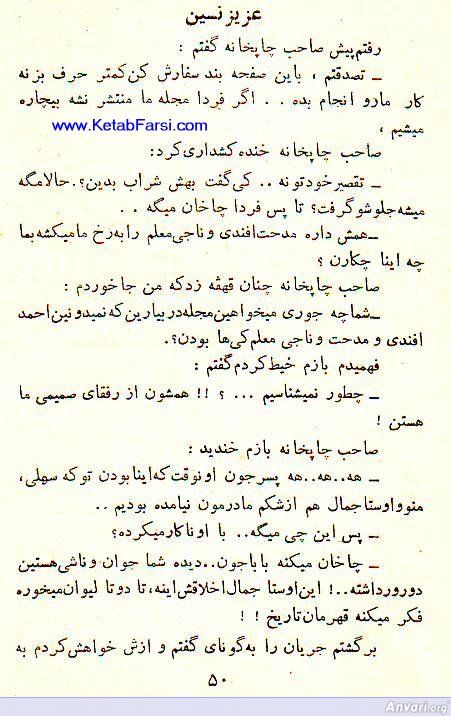 عزیز نسین
رفتم پیش صاحب چاپخانه گفتم :
ــ تصدقتم ، باین صفحه بند سفارش کن کمتر حرف بزنه
کار مارو انجام بده . . اگر فردا مجله ما منتشر نشه بیچاره
www.KetabFarsi.com
میشیم ،
صاحب چاپخانه خنده کشداری کرد:
ــ تقصیر خودتونه .. کی گفت بهش شراب بدین؟. حالا مگه
میشه جلوشو گرفت؟ تا پس فردا چاخان میگه . .
ــ همش داره مدحت افندی و ناجی معلم را به رخ ما میکشه بما
چه اینا چکارن ؟
صاحب چاپخانه چنان قهقه زد که من جا خوردم :
ــ شما چه جوری میخواهین مجله در بیارین که نمیدونین احمد
افندی و مدحت و ناجی معلم کی ها بودن؟.
فهمیدم بازم خیط کردم گفتم :
ــ چطور نمیشناسیم ... ؟ !! همشون از رفقای صمیمی ما
هستن !
صاحب چاپخانه بازم خندید :
ــ هه..هه..هه پسرجون اونوقت که اینا بودن تو که سهلی،
من و اوستا جمال هم از شکم مادرمون نیامده بودیم ..
ــ پس این چی میگه.. با اونا کار میکرده؟
ــ چاخان میکنه باباجون.. دیده شما جوان و ناشی هستین
دور ورداشته..! این اوستا جمال اخلاقش اینه، تا دو تا لیوان میخوره
فکر میکنه قهرمان تاریخ ! !
برگشتم جریان را به گونای گفتم و ازش خواهش کردم به
۵۰
Anvari.org